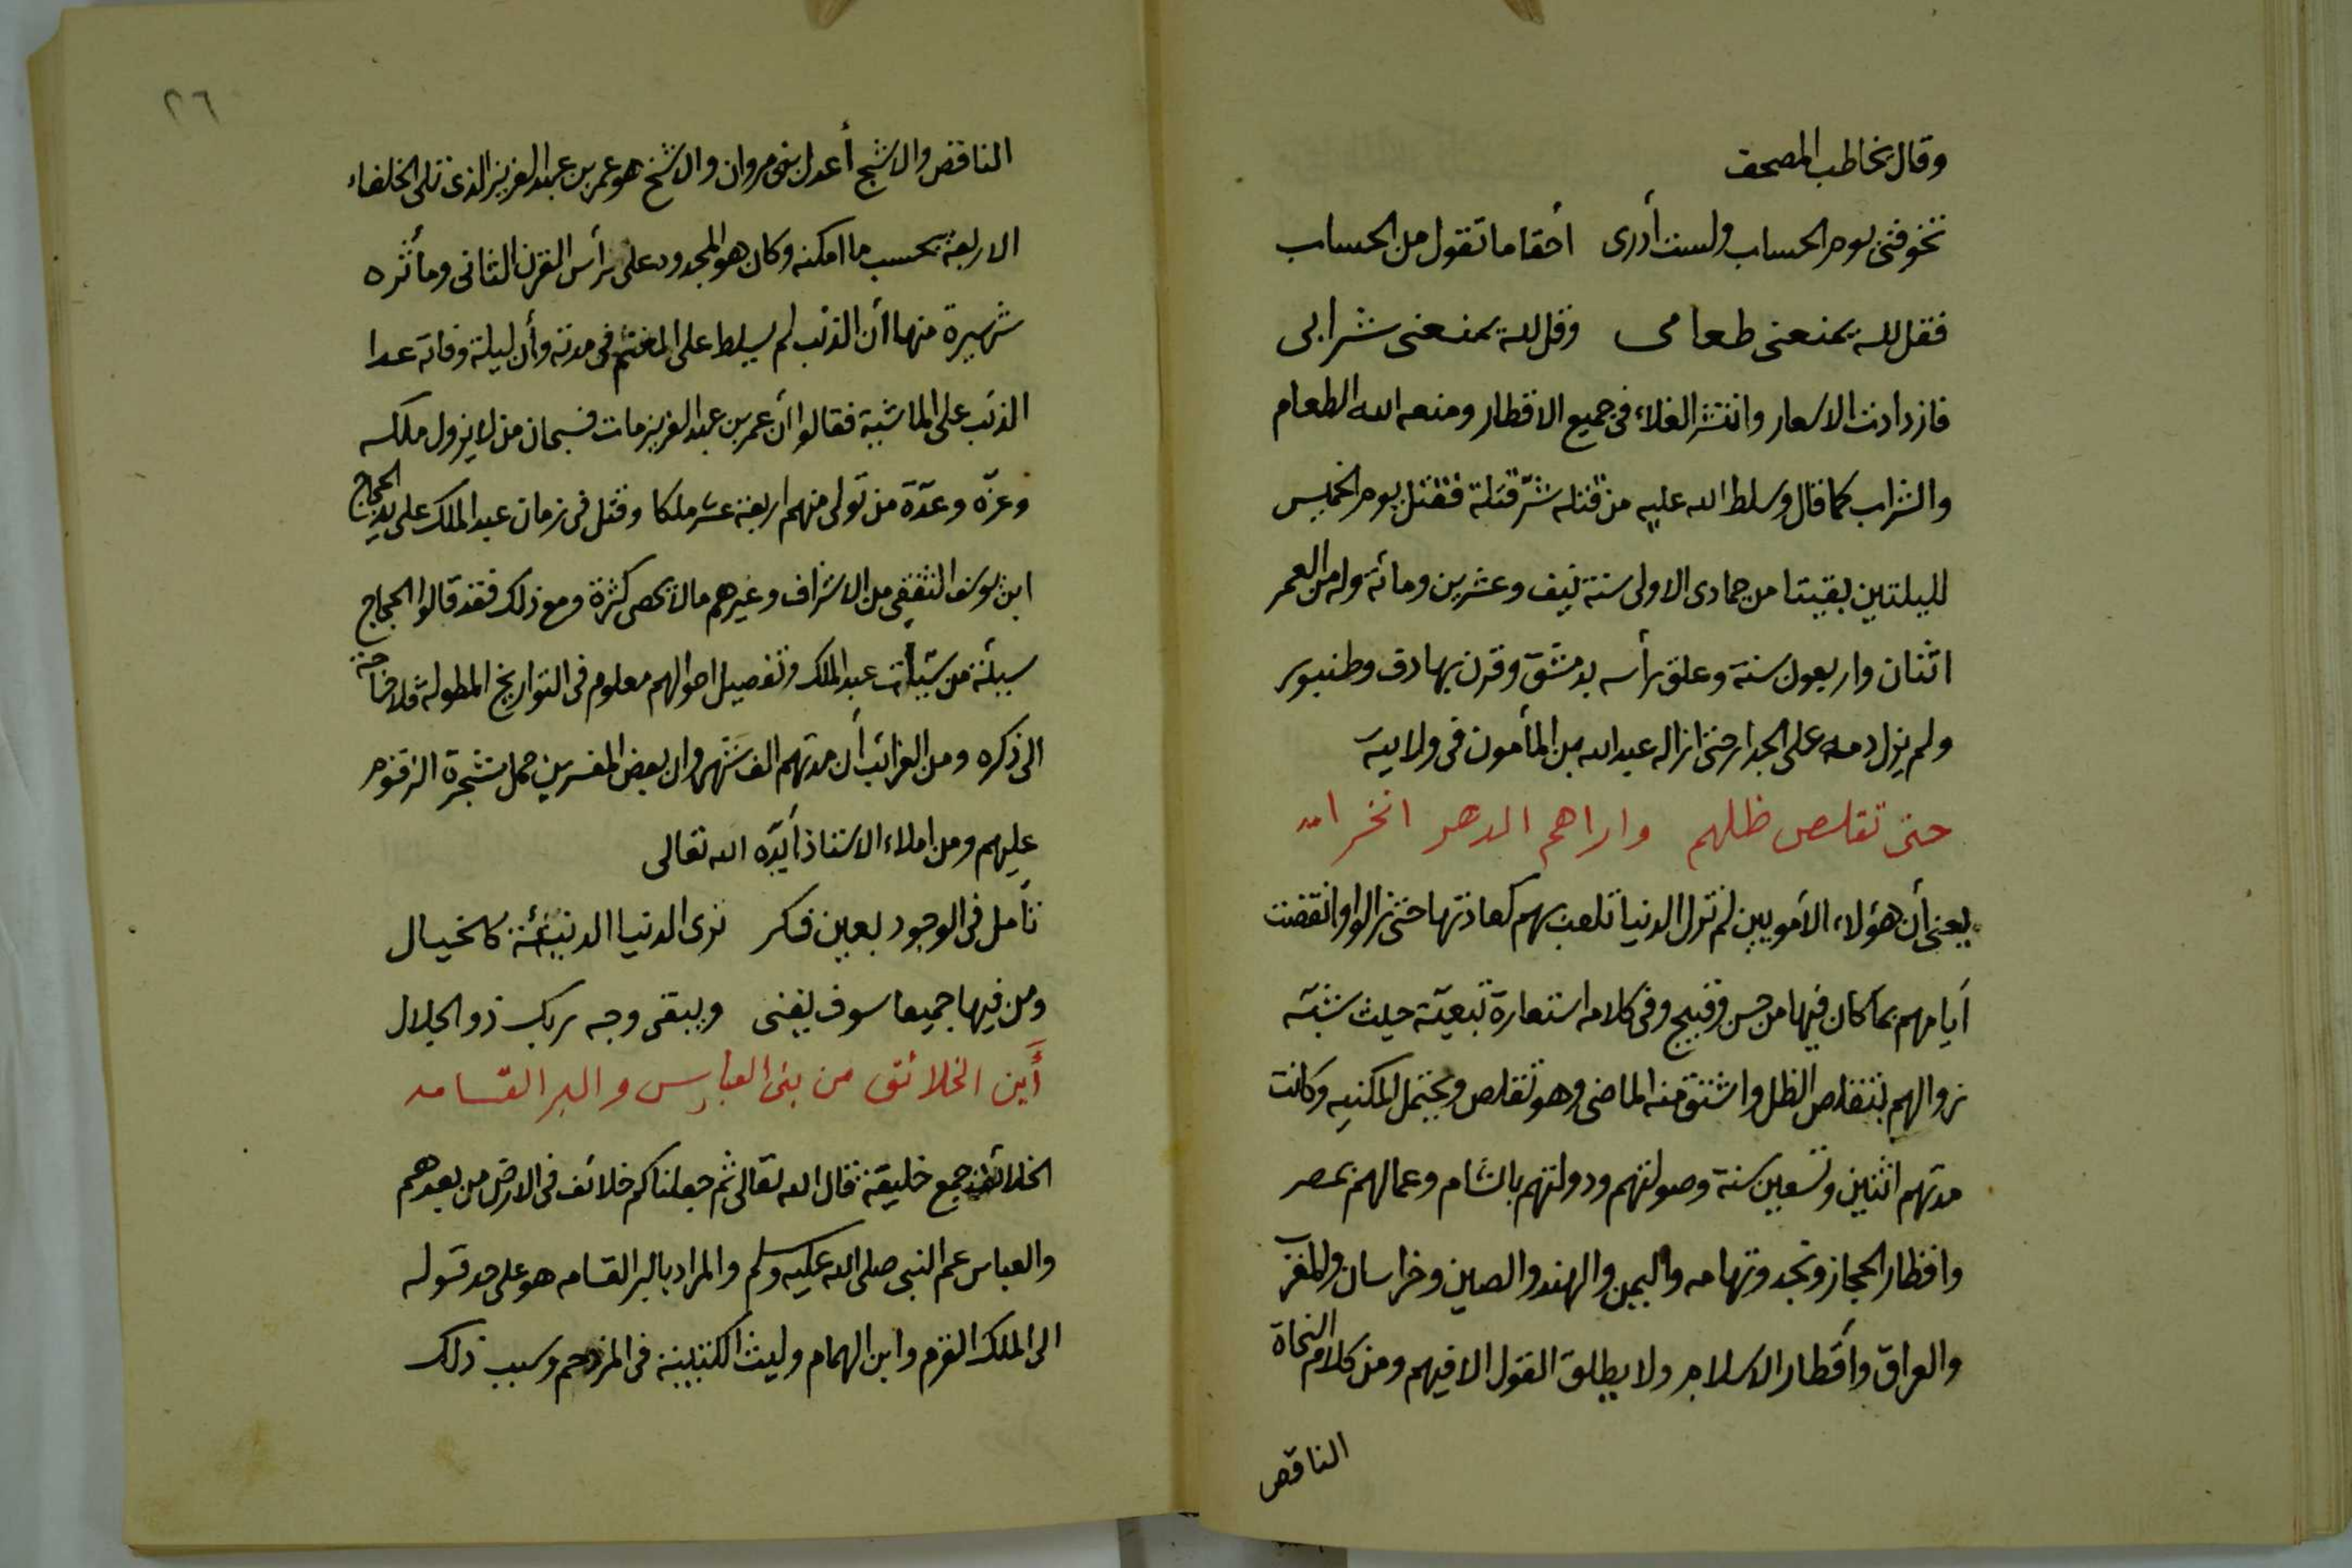 وقال يخاطب المصحف
تخوفنى يوم الحساب ولست أدرى أحقا ما تقول من الحساب
فقل لله يمنعنى طعامى وقل لله يمنعنى شرابى
فازدادت الاسعار وانتشر الغلاء فى جميع الاقطار ومنعه الله الطعام
والشراب كما قال وسلط الله عليه من قتله شرّ قتلة فقتل يوم الخميس
لليلتين بقيتا من جمادى الاولى سنة نيف وعشرين ومائة وله من العمر
اثنان واربعون سنة وعلق رأسه بدمشق وقرن بها دف وطنبور
ولم يزل دمه على الجدار حتى ازاله عبد الله بن المأمون فى ولايته
حتى تقلص ظلهم واراهم الدهر انخرامه
يعنى أن هؤلاء الأمويين لم تزل الدنيا تلعب بهم كعادتها حتى زالوا وانقضت
أيامهم بما كان فيها من حسن وقبيح وفى كلامه استعارة تبعيّة حيث شبّه
زوالهم بتقلص الظل واشتق منه الماضى وهو تقلص ويحتمل المكنيه وكانت
مدتهم اثنين وتسعين سنة وصولتهم ودولتهم بالشام وعمالهم بمصر
واقطار الحجاز ونجد وتهامه واليمن والهند والصين وخراسان والمغرب
والعراق وأقطار الاسلام ولا يطلق القول الا فيهم ومن كلام النحاة
الناقص
٢٦
الناقص والاشج أعدل بنى مروان والاشج هو عمر بن عبد العزيز الذى تلى الخلفاء
الاربعة بحسب ما امكنه وكان هو المجدود على رأس القرن الثانى ومأثره
شهيرة منها أن الذئب لم يسلط على الغنم فى مدته وأن ليلة وفاته عدا
الذئب على الماشية فقالوا أن عمر بن عبد العزيز مات فسبحان من لا يزول ملكه
وعزّه وعدّة من تولى منهم اربعة عشر ملكا وقتل فى زمان عبد الملك على يد الحجاج
ابن يوسف الثقفى من الاشراف وغيرهم ما لا يحصى كثرة ومع ذلك فقد قالوا الحجاج
سيئة من سيّأت عبد الملك وتفصيل احوالهم معلوم فى التواريخ المطولة فلا حاجة
الى ذكره ومن الغرائب أن مدتهم الف شهر وان بعض المفسرين حمل شجرة الزقوم
عليهم ومن املاء الاستاذ أيّده الله تعالى
تأمل فى الوجود بعين فكر ترى الدنيا الدنيئة كالخيال
ومن فيها جميعا سوف يفنى ويبقى وجه ربك ذو الجلال
أين الخلائق من بنى العباس والبر القسامه
الخلائف جمع خليفة قال الله تعالى ثم جعلناكم خلائف فى الارض من بعدهم
والعباس عم النبى صلى الله عليه وسلم والمراد بالبر القسامه هو على حد قوله
الى الملك القرم وابن الهمام وليث الكتيبة فى المزدحم وسبب ذلك